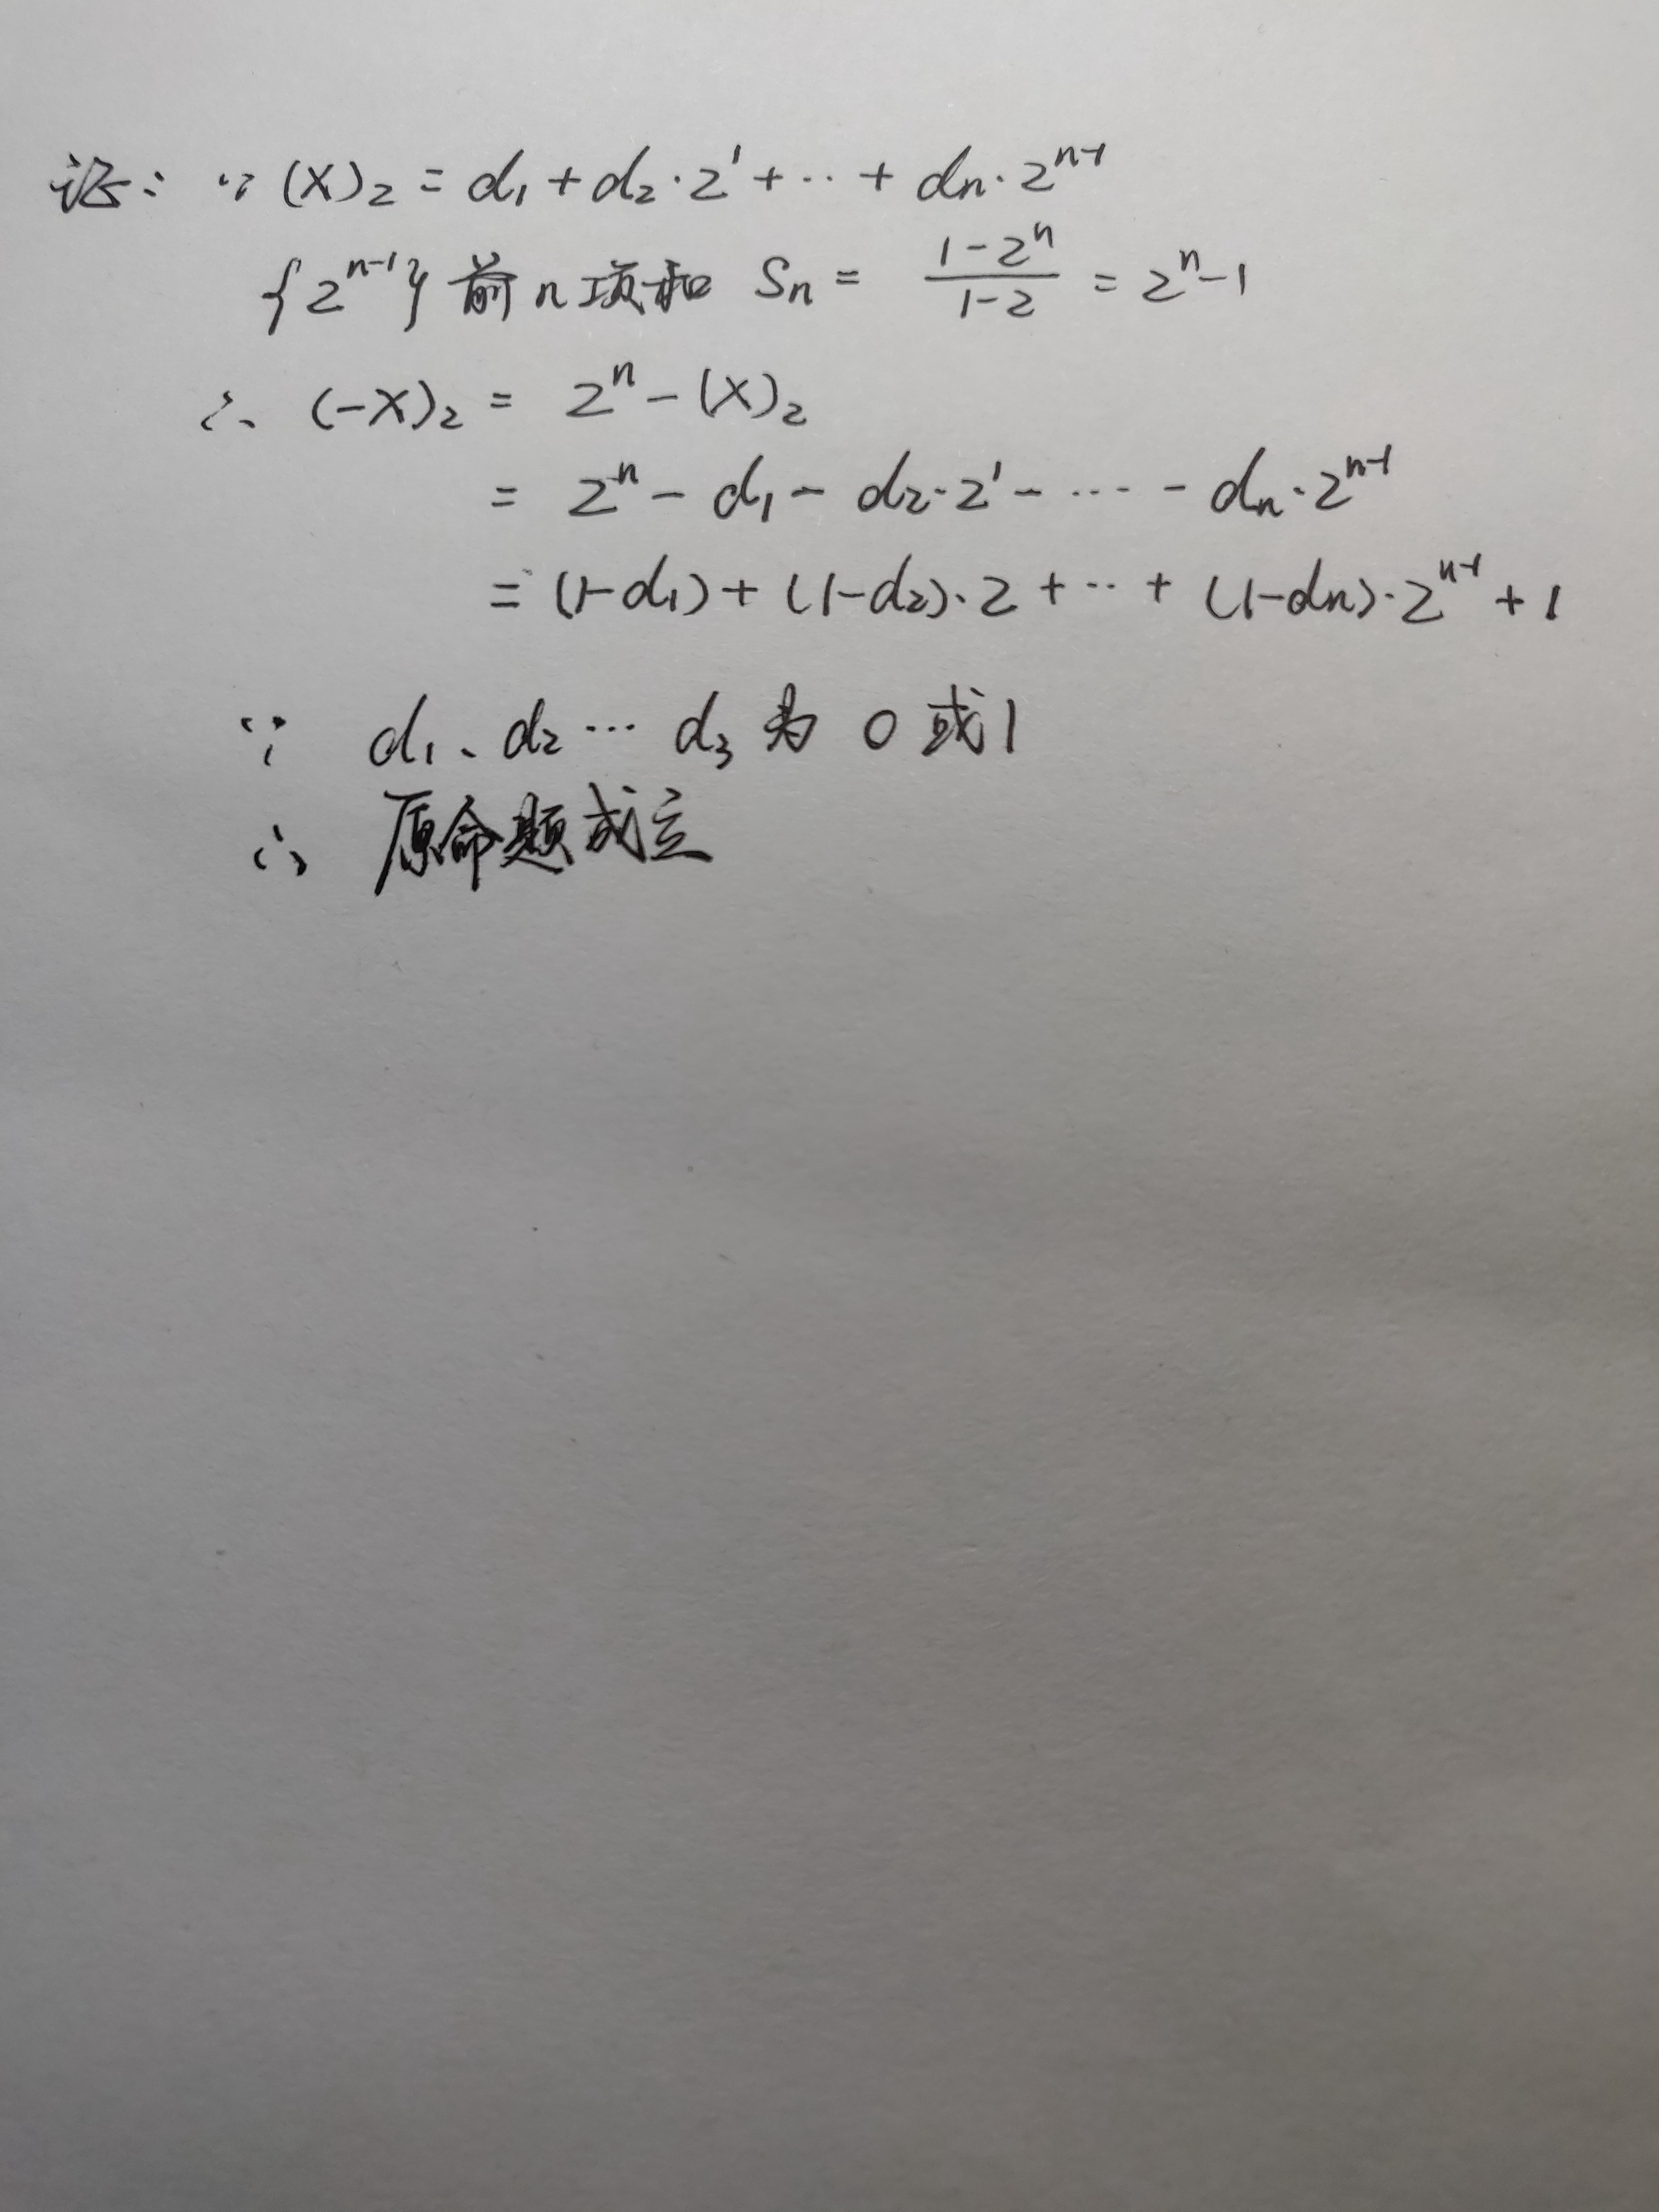 证: ∵ (X)₂ = d₁ + d₂·2¹ + ⋯ + dₙ·2ⁿ⁻¹
{2ⁿ⁻¹} 前n项和 Sₙ = (1-2ⁿ)/(1-2) = 2ⁿ-1
∴ (-X)₂ = 2ⁿ - (X)₂
= 2ⁿ - d₁ - d₂·2¹ - ⋯ - dₙ·2ⁿ⁻¹
= (1-d₁) + (1-d₂)·2 + ⋯ + (1-dₙ)·2ⁿ⁻¹ + 1
∵ d₁、d₂ ⋯ d₃ 为 0 或 1
∴ 原命题成立